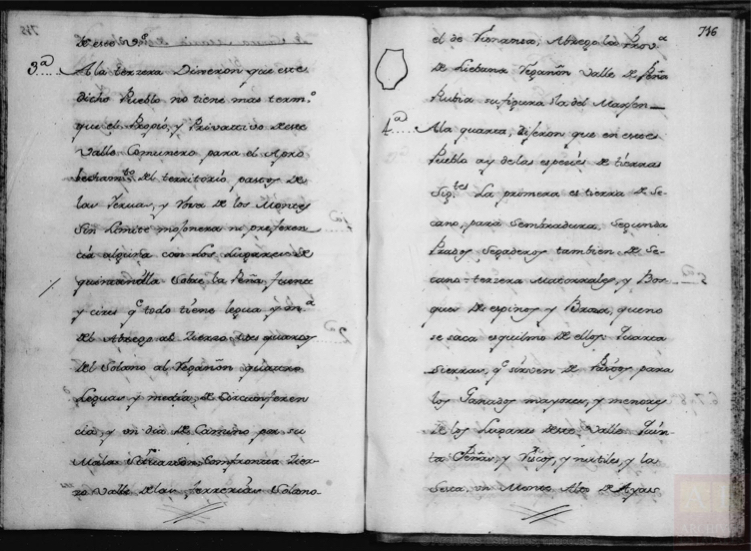 de este v.º
3ª.... A la terzera Dixeron que este
dicho Pueblo no tiene mas term.º
que el Propio, y Privativo de este
Valle Comunero para el Apro
bechamto del territorio, pastos de
las Yervas, y
Sin Limite mojonera ni preferen
cia alguna con los Lugares de
sobre la Peña, fuente
y cires q.e todo tiene legua y
del Abrego al Zierzo, tres quartos
del Solano al Regañon quatro
Leguas y media de Circunferen
cia, y un dia de Camino por su
Malas Confronta Zier-
zo Valle de las ferrerias Solano-
746
el de Abrego la Prov.a
de Liebana Regañon Valle de Peña
Rubia su figura la del Marjen
4ª.... A la quarta, Dijeron que en este
Pueblo ay de las especies de tierras
Sig.tes La primera es tierra de Se-
cano, para Sembradura, Segunda
Prados Segaderos tambien de Se-
cano: terzera Matorrales, y Bos-
ques de espinos y Brozas, que no
se saca esquilmo de ellos: Quarta
Sierras, q.e sirven de Pastos para
los Ganados mayores, y menores
de los Lugares deste Valle: Quin-
ta Peñas, y Riscos, ynutiles, y la
Sexta, un Monte Alto de Ayas